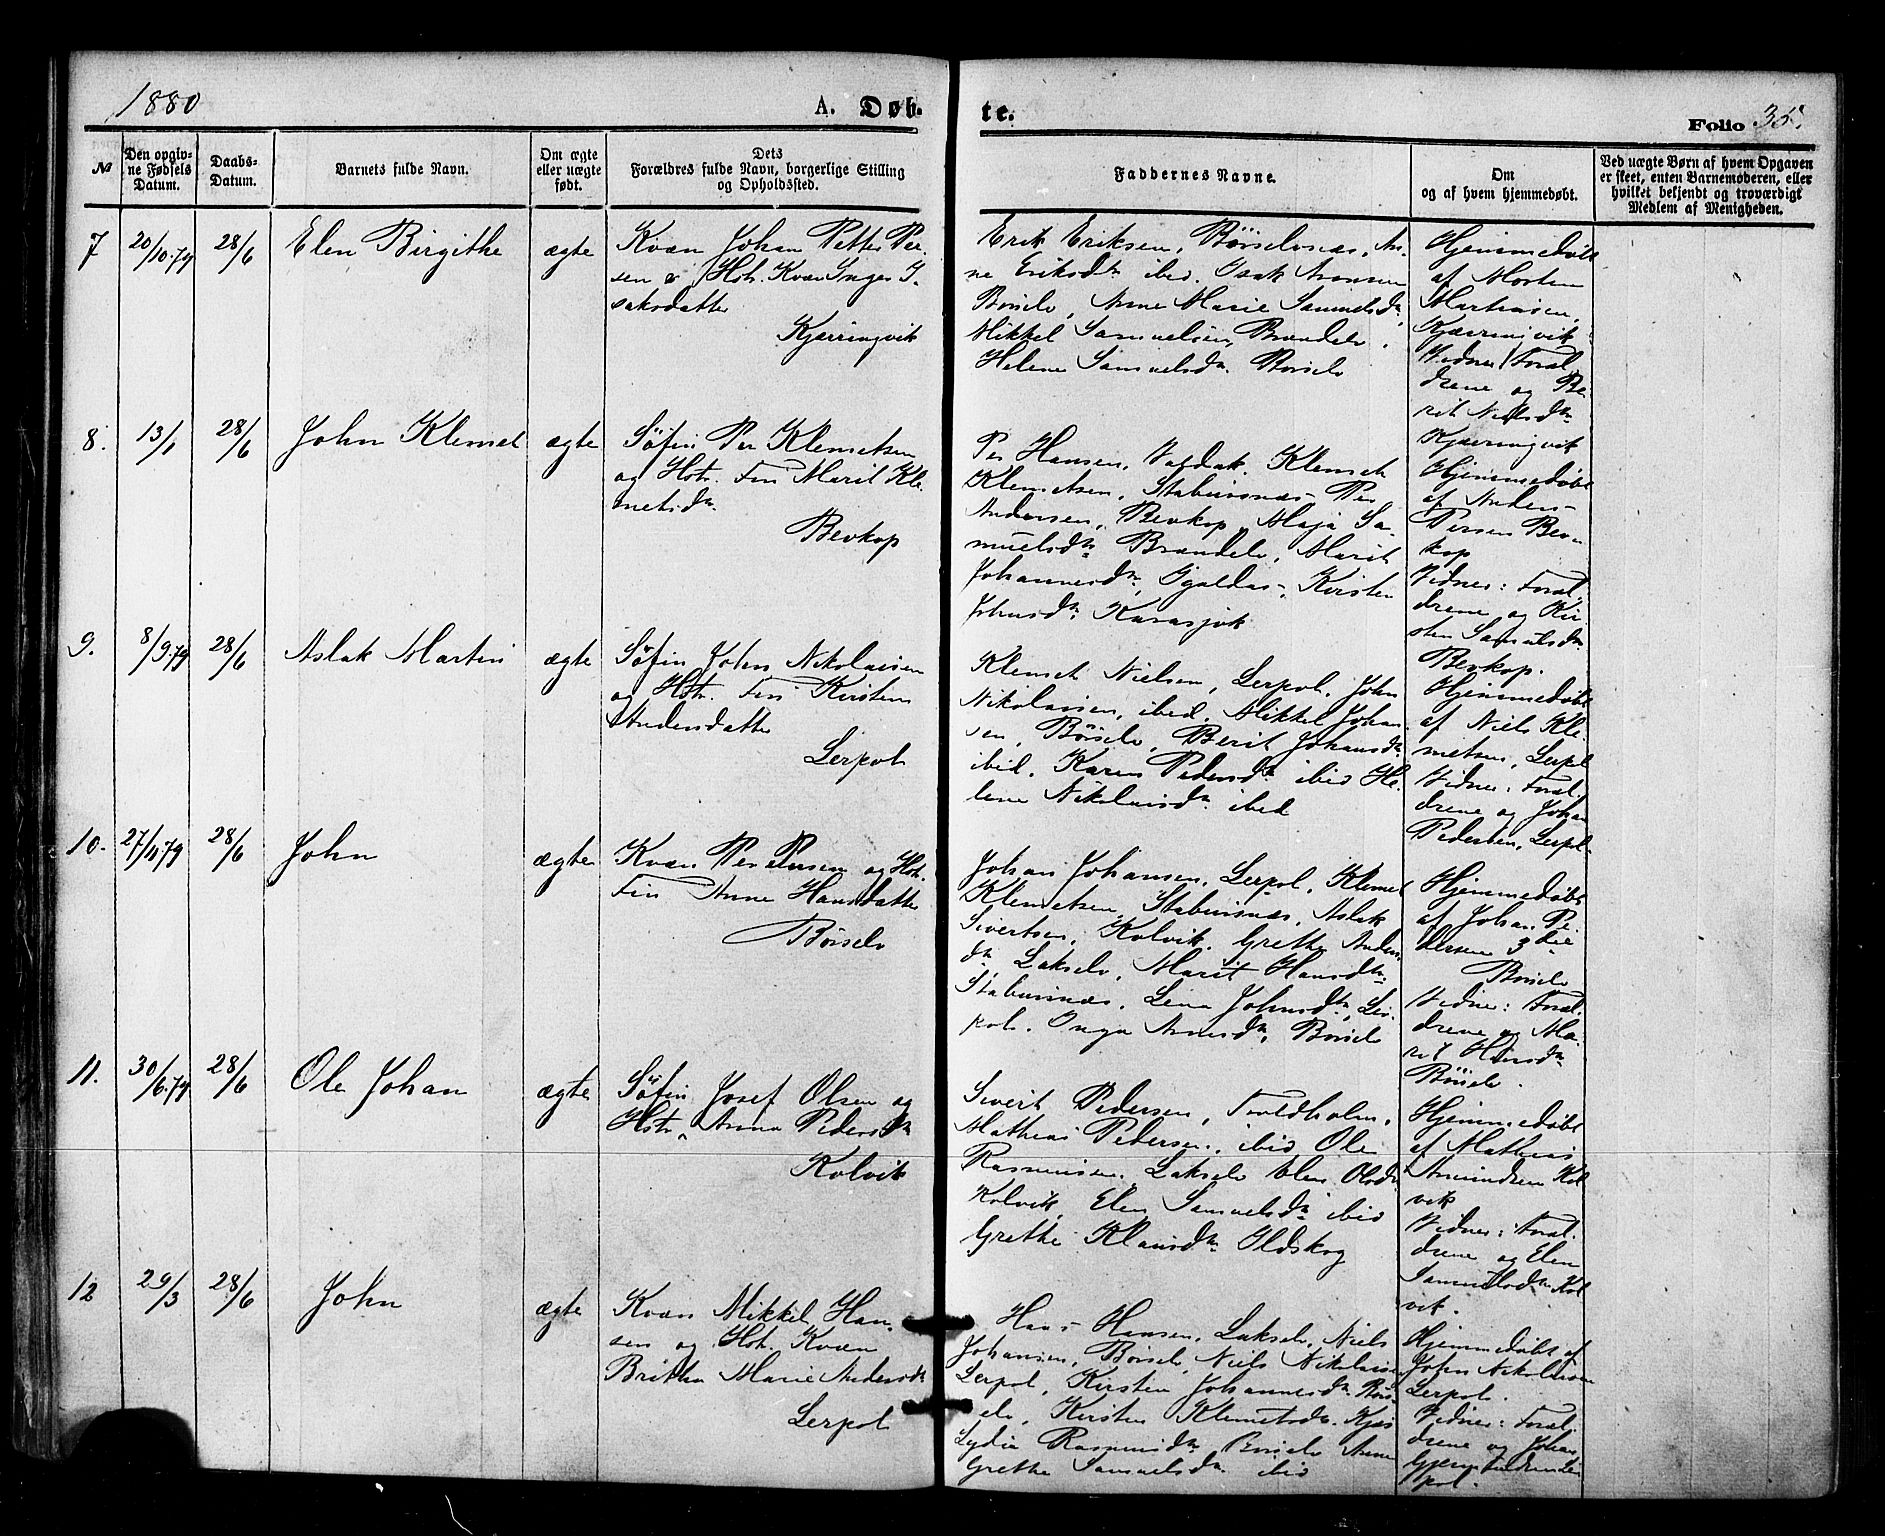 1880
A. Døb-
te.
Folio 35.
№
Den opgiv-
ne Fødsels
Datum.
Daabs-
Datum.
Barnets fulde Navn.
Om ægte
eller uægte
født.
Dets
Forældres fulde Navn, borgerlige Stilling
og Opholdssted.
Faddernes Navne.
Om
og af hvem hjemmedøbt.
Ved uægte Børn af hvem Opgaven
er skeet, enten Barnemoderen, eller
hvilket bekjendt og troværdigt
Medlem af Menigheden.
7
20/10.79
28/6
Elen Birgithe
ægte
Kvæn Johan Petter Per-
sen & Hstr. Kvæn Inger I-
saksdatter
Kjærringvik
Erik Eriksen, Børselvnæs, An-
ne Eriksdtr ibid. Isak Aronsen
Børselv, Anne Marie Samuelsdtr
Mikkel Samuelsen, Brændelv,
Helene Samuelsdtr. Børselv
Hjemmedøbt
af Morten
Martinsen,
Kjærringvik
Vidner: Foræl
drene og Be
rit Nielsdtr
Kjærringvik
8.
13/1
28/6
John Klemet
ægte
Søfin Per Klemetsen
og Hstr. Fin Marit Kle-
metsdtr
Bevkop
Per Hansen, Valdak. Klemet
Klemetsen, Stabursnæs, Per
Andersen, Bevkop, Maja Sa-
muelsdtr Brændelv, Marit
Johannesdtr, Igaldas, Kirsten
Johnsdtr Karasjok
Hjemmedøbt
af Anders
Persen Bev-
kop
Vidner: Foræl-
drene og Kir
sten Samuelsdtr
Bevkop.
9.
8/9.79
28/6
Aslak Martin
ægte
Søfin John Nikolaisen
og Hstr. Fin Kirsten
Andersdatter
Lerpol
Klemet Nielsen, Lerpol. John
Nikolaisen, ibid. Mikkel Johan-
sen, Børselv, Berit Johansdtr
ibid. Karen Pedersdtr ibid He-
lene Nikolaisdtr ibid
Hjemmedøbt
af Niels Kle-
metsen, Lerpl
Vidner: Foræl.
drene og Johan
Pedersen, Lerpol-
10.
27/11.79
28/6
John
ægte
Kvæn Per Persen og Hstr.
Fin Anne Hansdatter
Børselv
Johan Johansen, Lerpol, Klemet
Klemetsen, Stabursnæs, Aslak
Sivertsen, Kolvik. Grethe Anders
dtr Lakselv, Marit Hansdtr
Stabursnæs, Lena Johnsdtr, Ler-
pol. Inga Arnesdtr, Børselv
Hjemmedøbt
af Johan Pe-
dersen 3die
Børselv
Vidner: Foræl.
drene og Ma-
rit Hansdtr
Børselv.
11.
30/6.79
28/6
Ole Johan
ægte
Søfin Josef Olsen og
Hstr. Anna Pedersdtr
Kolvik
Sivert Pedersen,
Mathias Pedersen, ibid Ole
Rasmussen. Lakselv Elen Olsdtr
Kolvik, Elen Samuelsdtr ibid
Grethe Klausdtr Ildskog
Hjemmedøbt
af Mathias
Amundsen Kol
vik
Vidner: Foræl.
drene og Elen
Samuelsdtr Kol
vik.
12
29/3
28/6
John
ægte
Kvæn Mikkel Han-
sen og Hstr. Kvæn
Britha Marie Andersdtr
Lerpol
Hans Hansen, Lakselv, Niels
Johansen, Børselv, Niels Nikolaisen
Lerpol, Kirsten Johannesdtr Børs
elv, Kirsten Klemetsdtr.
Lydia Rasmusdtr Børselv Anne
Grethe Samuelsdtr ibid
Hjemmedøbt af
John Nikolaisen
Lerpol.
Vidner: Foræl.
drene og Johan
Ler
pol.